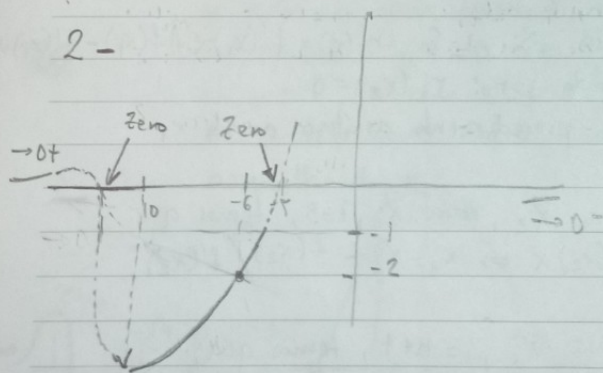 2-
Zero Zero
→0+
10 -6 -5
→0-
-1
-2